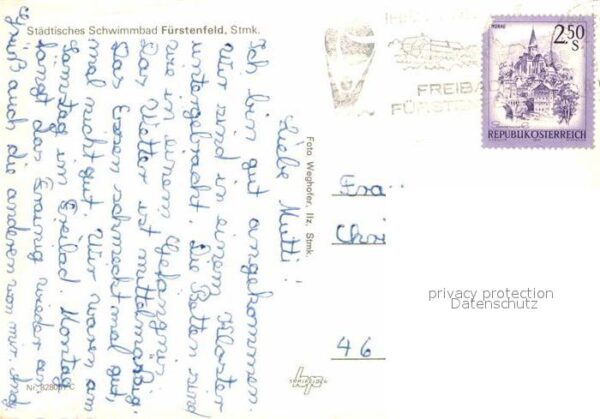 Städtisches Schwimmbad Fürstenfeld, Stmk.
Liebe Mutti!
Ich bin gut angekommen.
Wir sind in einem Kloster
untergebracht. Die Betten sind
wie in einem Gefängnis.
Das Wetter ist mittelmäßig.
Das Essen schmeckt mal gut,
mal nicht gut. Wir waren am
Samstag im Freibad. Montag
fängt das Training wieder an.
Grüß auch die anderen von mir.
Foto Weghofer, Ilz, Stmk.
FREIBA
FÜRSTEN
2.50
S
REPUBLIK ÖSTERREICH
Fra
Chri
46
privacy protection
Datenschutz